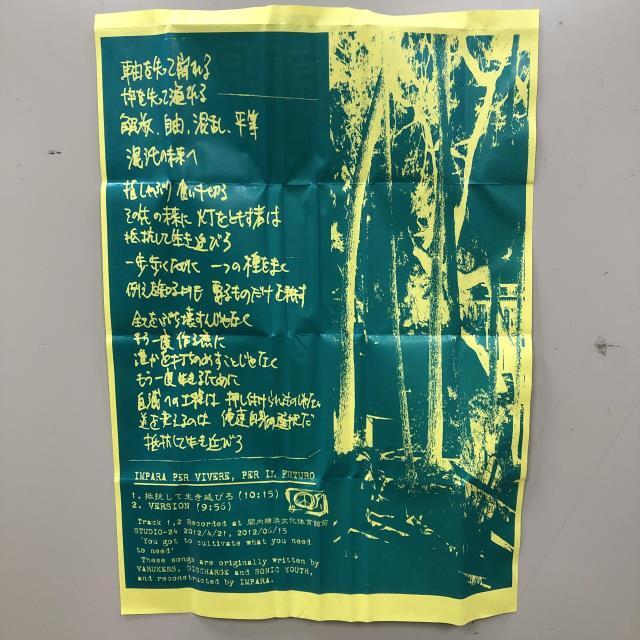 軸を失って崩れる
枠を失って溢れる
解放、自由、混乱、平等
混沌の未来へ
千切る
その先の未来に 灯をともす者は
抵抗して生き延びろ
一歩歩くために 一つの種をまく
ものだけを耕す
全てをぶち壊すんじゃなく
もう一度 作る為に
誰かを打ちのめすことじゃなく
もう一度 生きるために
自滅への工程は 押し付けられるものじゃない
道を考えるのは 俺達自身の選択だ
抵抗して生き延びろ
IMPARA PER VIVERE, PER IL FUTURO
1. 抵抗して生き延びろ (10:15)
2. VERSION (9:56)
Track 1,2 Recorded at 関内横浜文化体育館前
STUDIO-24 2012/4/21, 2012/06/15
'You got to cultivate what you need
to need'
These songs are originally written by
VARUKERS, DISCHARGE and SONIC YOUTH,
and reconstructed by IMPARA.